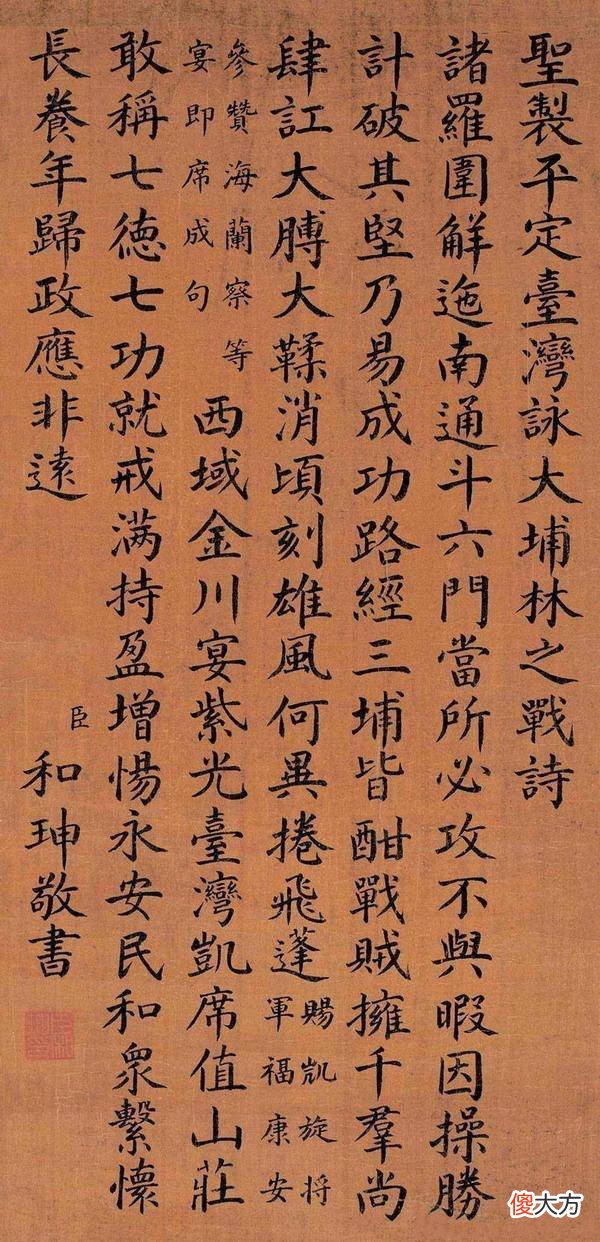 聖製平定臺灣詠大埔林之戰詩
諸羅圍解迤南通斗六門當所必攻不與暇因操勝
計破其堅乃易成功路經三埔皆酣戰賊擁千羣尚
肆訌大膊大鞣消頃刻雄風何異捲飛蓬
賜凱旋将
軍福康安
參贊海蘭察等
宴即席成句
西域金川宴紫光臺灣凱席值山莊
敢稱七徳七功就戒满持盈增惕永安民和衆繫懷
長養年歸政應非遠
臣和珅敬書
傻大方